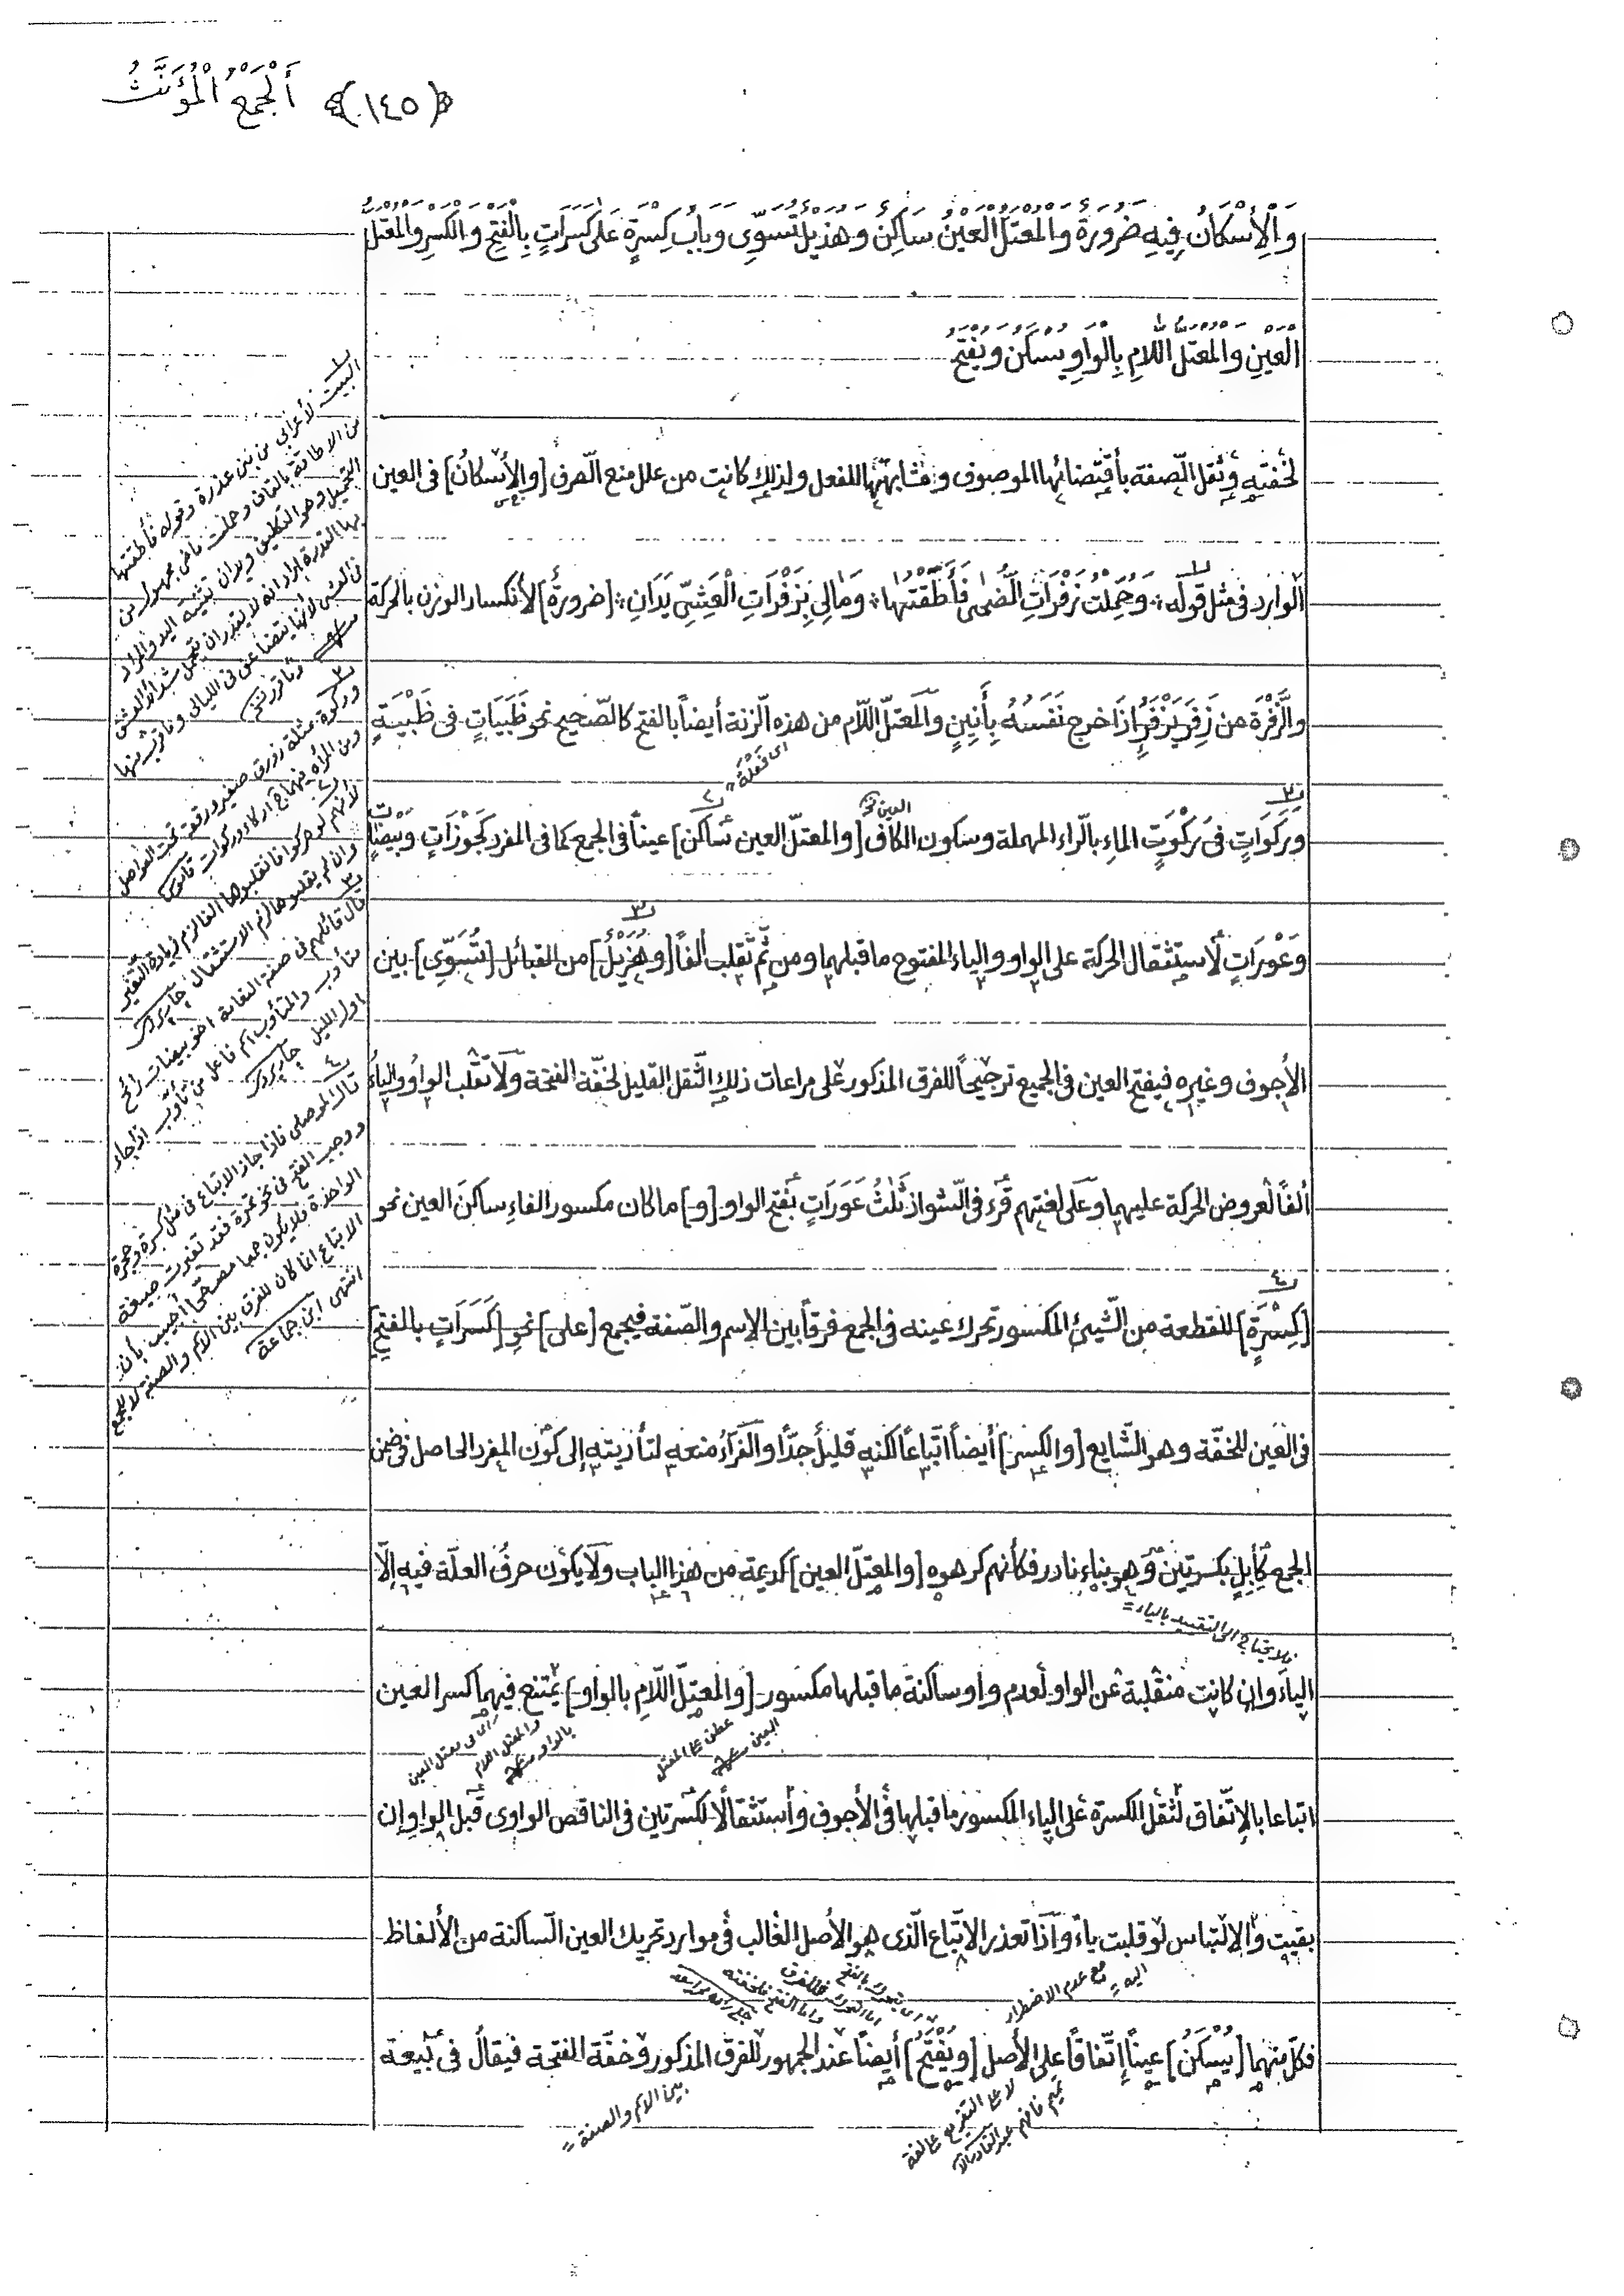 ﴿١٤٥﴾ أَلْجَمْعُ الْمُؤَنَّثُ
وَالْأِسْكَانُ فِيهِ ضَرُورَةٌ وَالْمُعْتَلُّ الْعَيْنُ سَاكِنٌ وَهُذَيْلٌ تُسَوِّى وَبَابُ كِسْرَةٍ عَلٰى كَسَرَاتٍ بِالْفَتْحِ وَالْكَسْرِ وَالْمُعْتَلُّ
الْعَيْنِ وَالْمُعْتَلُّ اللّامِ بِالْوَاوِ يُسْكَنُ وَيُفْتَحُ
لخفته وثقل الصّفة بأقتضائها الموصوف ومشابهتها للفعل ولذلك كانت من علل منع الصّرف [والأسْكانُ] فى العين
الوارد فى مثل قوله؛ وَحُمِّلْتُ زَفْرَاتِ الضُّحٰى فَأَطَقْتُهَا؛ وَمَالِى بِزَفْرَاتِ الْعَشِىِّ يَدَانِ؛ [ضرورةٌ] لأنكسار الوزن بالحركة
والزَّفْرَة من زَفَرَ يَزْفِرُ إذَا خرج نَفَسُهُ بِأَنِينٍ والمعتلّ اللّام من هذه الزّنة أيضاً بالفتح كالصّحيح نحو ظَبَيَاتٍ فى ظَبْيَةٍ
اى فَعْلَة
وركَوَاتٍ فى رَكْوَتٍ الماءِ بالرّاء المهملة وسكون الكاف [والمعتلّ العين ساكن] عيناً فى الجمع كما فى المفرد كَجَوْزَاتٍ وَبَيْضَاتٍ
وَعَوْرَاتٍ لأستثقال الحركة على الواو والياء المفتوح ما قبلهما ومن ثَمَّ تقلب ألفاً [وهُذَيْلٌ] من القبائل [تُسَوِّى] بين
الأجوف وغيره فيفتح العين فى الجميع ترجيحاً للفرق المذكور على مراعات ذلك الثّقل القليل لخفّة الفتحة ولا تقلب الواو والياءُ
ألفًا لعروض الحركة عليهما وعلى لغتهم قُرِءَ فى الشّواذ ثَلٰثُ عَوَرَاتٍ بفتح الواو [و] ما كان مكسور الفاءِ ساكنَ العين نحو
[كِسْرَةٍ] للقطعة من الشّيئ المكسور تحرك عينه فى الجمع فرقاً بين الإسم والصّفة فيجمع [على] نحوِ [كَسَرَاتٍ بالفتحِ]
فى العين للخفّة وهو الشّايع [والكسرِ] أيضاً اتّباعاً لكنه قليلٌ جدًّا والفرّاءُ منعه لتأديته إلى كون المفرد الحاصل فى ضمن
الجمع كَإبِلٍ بكسرتين وهو بناء نادر فكأنهم كرهوه [والمعتلّ العين] كديمة من هذا الباب ولا يكون حرفُ العلّة فيه إلّا
فلا يحتاج الى التقييد بالياء
الياءَ وان كانت منقلبة عن الواو لعدم واو ساكنة ما قبلها مكسور [والمعتلّ اللّامِ بالواو] يمتنع فيهما كسر العين
عطف على المعتل العين
اى فى معتل العين والمعتل اللام بالواو
اتباعا بالإتّفاق لثقل الكسرة على الياء المكسور ما قبلها فى الأجوف وأستثقالًا لكسرتين فى الناقص الواوى قبل الواو إن
بقيت والالتباس لو قلبت ياءً وَاذا تعذر الاتّباع الّذى هو الأصل الغالب فى موارد تحريك العين السّاكنة من الألفاظ
اليه مع عدم الاضطرار
فكلّ منهما [يُسْكَنُ] عيناً إتّفاقاً على الأصل [ويُفْتَحُ] أيضاً عند الجمهور للفرق المذكور وخفّة الفتحة فيقال فى بيعة
بين الاسم والصفة
البيت لأعرابى من بنى عذرة وقوله فأطقتها
من الاطاقة بالقاف وحملت ماض مجهول من
التحميل وهو التكليف ويدان تثنية اليد والمراد
بها القدرة اراد انه لا يقدر ان يتحمل شدائد العشق
وركوة مثلثة زورق صغير ورقعة تحت العواصر
لأنهم لو حركوا فان قلبوها الفا لزم زيادة التغير
وان لم يقلبوها لزم الاستثقال
قال قائلهم فى صفة النعامة اخو بيضات رائح
متأوب والمتأوب اسم فاعل من تأوب اذا جاء
اول الليل
قال الموصلى فاذا جاز الاتباع فى مثل كسرة وحجرة
ووجب الفتح فى نحو تمرة فقد تغيرت صيغة
الواحدة فلا يكون جمعا مصححا أجيب بأن
الاتباع انما كان للفرق بين الاسم والصفة لا للجمع
انتهى ابن جماعة